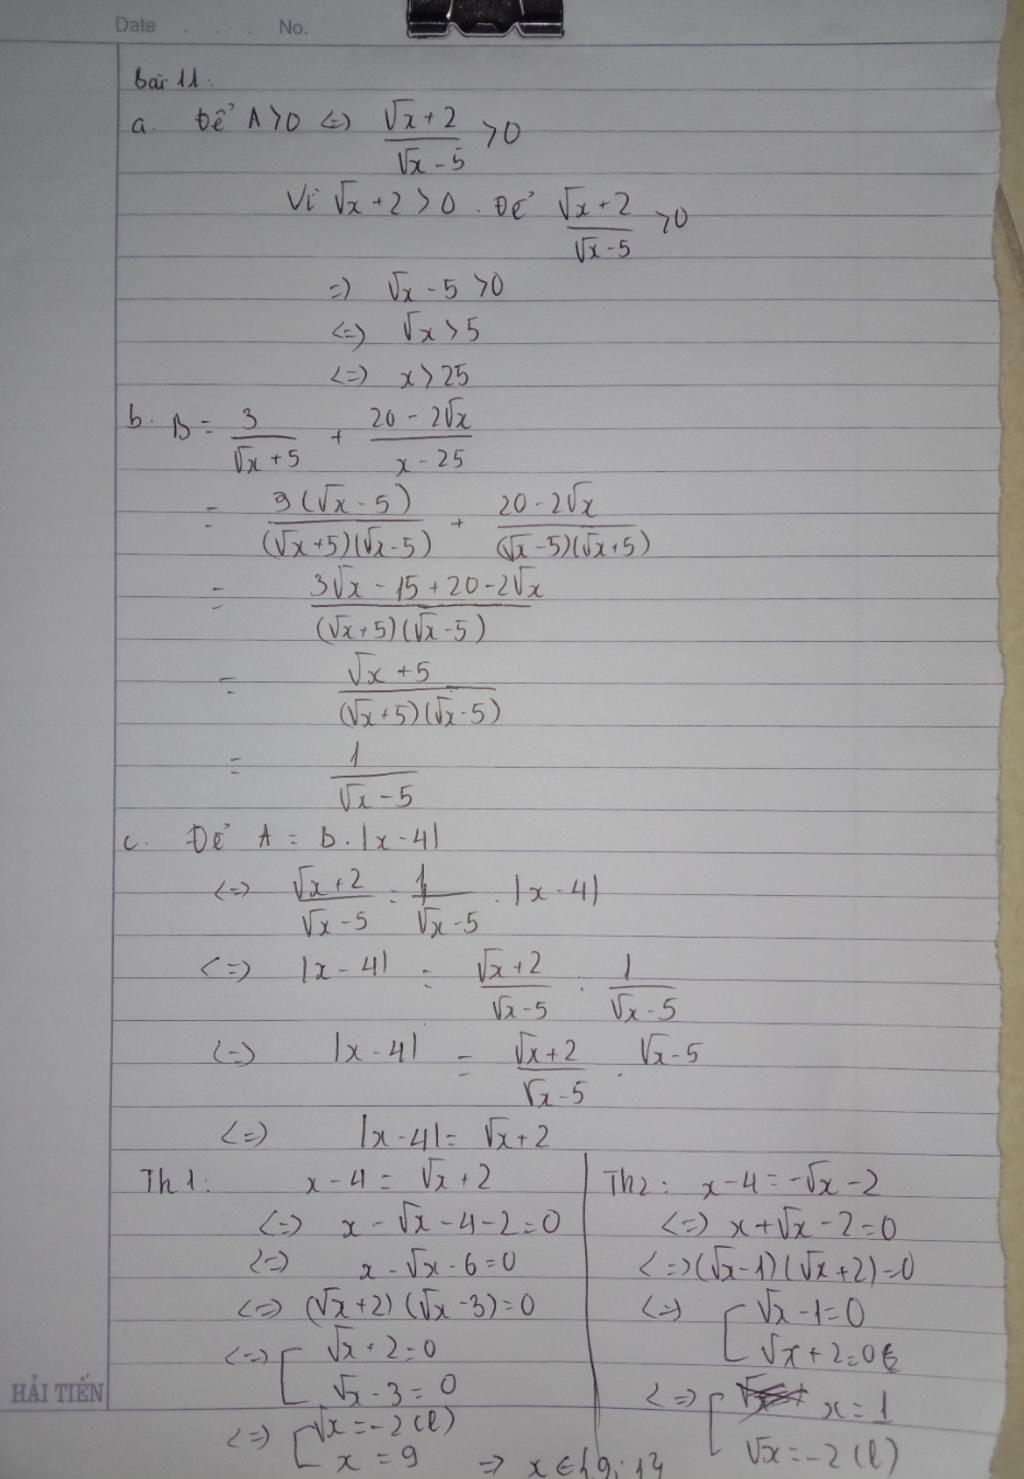 Date . . . No.
Bài 11:
a. Để A>0 <=> (√x+2)/(√x-5) >0
Vì √x+2>0. Để (√x+2)/(√x-5) >0
=> √x-5>0
<=> √x>5
<=> x>25
b. B = 3/(√x+5) + (20-2√x)/(x-25)
= 3(√x-5)/((√x+5)(√x-5)) + (20-2√x)/((√x-5)(√x+5))
= (3√x-15+20-2√x)/((√x+5)(√x-5))
= (√x+5)/((√x+5)(√x-5))
= 1/(√x-5)
c. Để A = B.|x-4|
<=> (√x+2)/(√x-5) = 1/(√x-5) . |x-4|
<=> |x-4| = (√x+2)/(√x-5) : 1/(√x-5)
<=> |x-4| = (√x+2)/(√x-5) . √x-5
<=> |x-4| = √x+2
Th1: x-4 = √x+2
<=> x-√x-4-2=0
<=> x-√x-6=0
<=> (√x+2)(√x-3)=0
<=> [ √x+2=0
√x-3=0
<=> [ √x=-2(l)
x=9
Th2: x-4=-√x-2
<=> x+√x-2=0
<=> (√x-1)(√x+2)=0
<=> [ √x-1=0
√x+2=0
<=> [ x=1
√x=-2(l)
=> x∈{9;1}
HẢI TIẾN